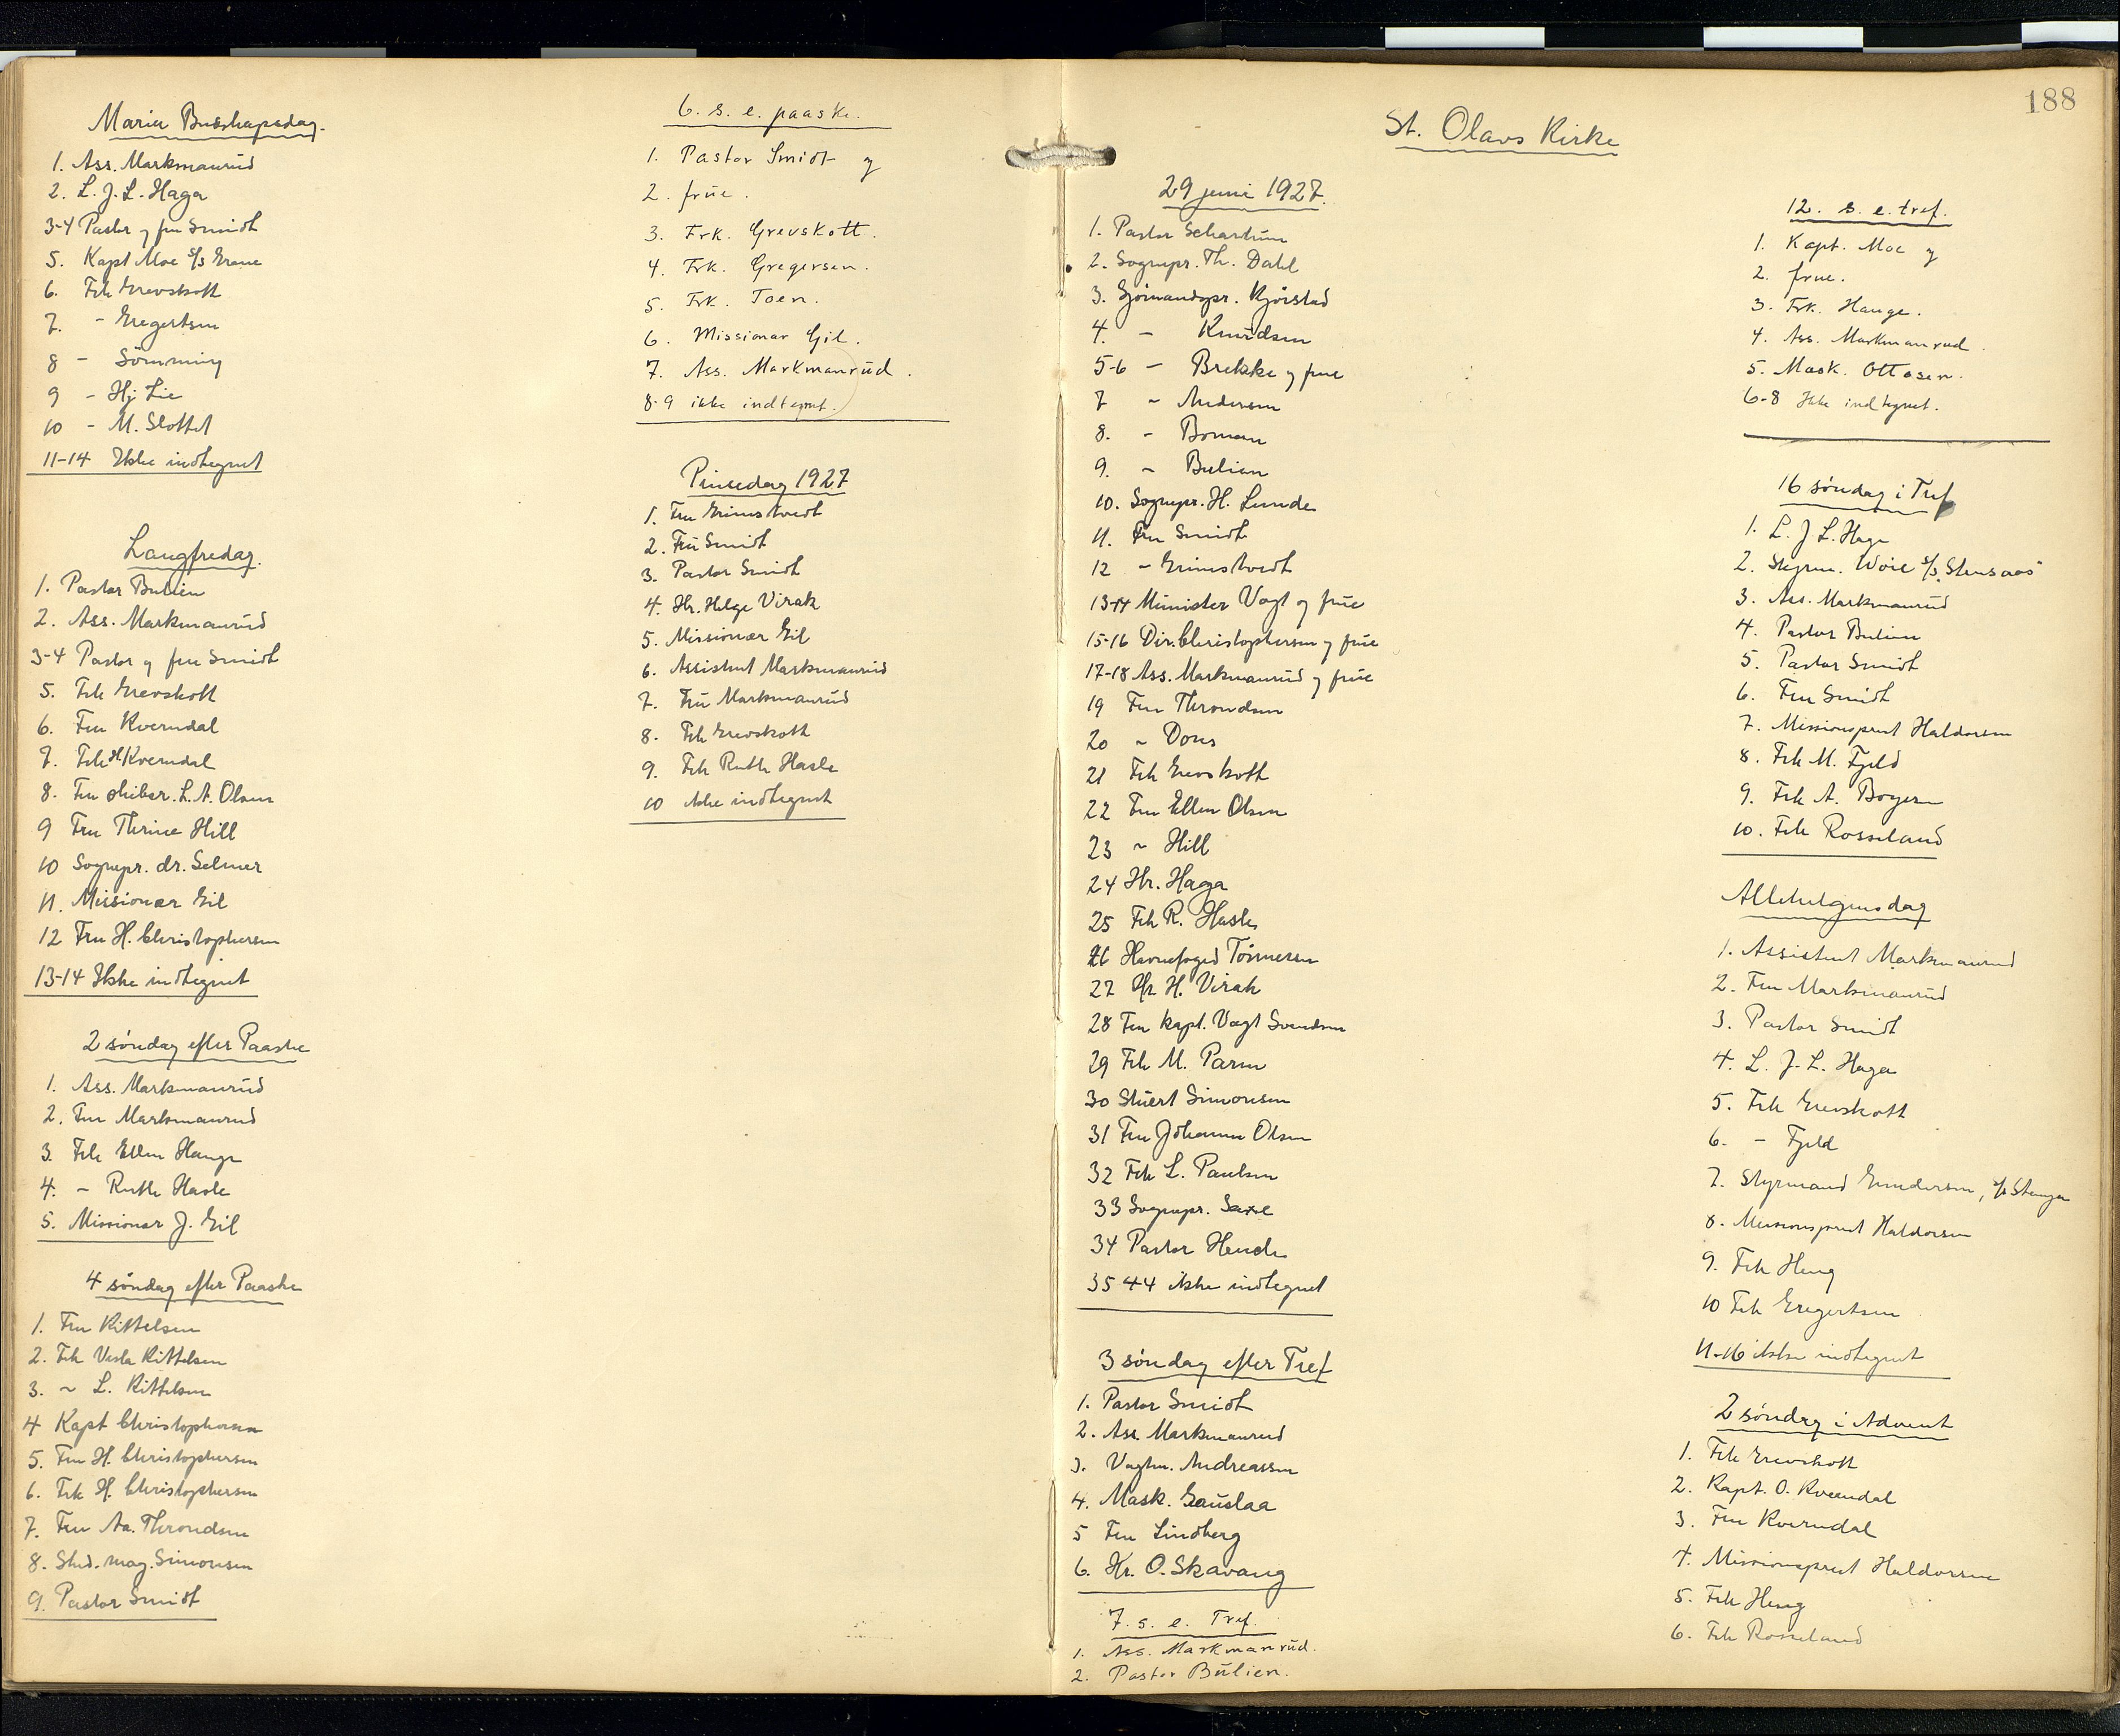 Mariæ Budskapsdag.
1. Ass. Markmanrud
2. L. J. L. Haga
3-4 Pastor og fru Smidt
5. Kapt Moe S/S Grane
6. Frk Grevskott
7. - Gregertsen
8 - Sömming
9 - Hj. Lie
10 - M. Slottet
11-14 Ikke indtegnet
Langfredag.
1. Pastor Bulien
2. Ass. Markmanrud
3-4 Pastor og fru Smidt
5. Frk Grevskott
6. Fru Kverndal
7. Frk H Kverndal
8. Fru skibsr. L. A. Olsen
9 Fru Thrine Hill
10 Sognepr. dr. Selmer
11. Missionær Gil
12 Fru H. Christophersen
13-14 Ikke indtegnet
2 söndag efter Paaske
1. Ass. Markmanrud
2. Fru Markmanrud
3. Frk Ellen Hauge
4. - Ruth Hasle
5. Missionær J. Gil
4 söndag efter Paaske
1. Fru Kittelsen
2. Frk Vesla Kittelsen
3. ~ L. Kittelsen
4 Kapt Christophersen
5. Fru H. Christophersen
6. Frk H. Christophersen
7. Fru Aa. Throndsen
8. Stud. mag. Simonsen
9. Pastor Smidt
6. s. e. paaske.
1. Pastor Smidt og
2. frue.
3. Frk. Grevskott.
4. Frk. Gregersen.
5. Frk. Toen.
6. Missionær Gil.
7. Ass. Markmanrud.
8-9 ikke indtegnet.
Pinsedag 1927
1. Fru Grimstvedt
2. Fru Smidt
3. Pastor Smidt
4. Hr. Helge Virak
5. Missionær Gil
6. Assistent Markmanrud
7. Fru Markmanrud
8. Frk Grevskott
9. Frk Ruth Hasle
10 ikke indtegnet
188
St. Olavs Kirke
29 juni 1927.
1. Pastor Schartum
2. Sognepr. Th. Dahl
3. Sjömandspr. Kjörstad
4. - Knudsen
5-6 - Brekke og frue
7 - Andersen
8. - Boman
9. ~ Bulien
10. Sognepr. H. Lunde
11. Fru Smidt
12 - Grimstvedt
13-14 Minister Vogt og frue
15-16 Dir. Christophersen og frue
17-18 Ass. Markmanrud og frue
19 Fru Throndsen
20 ~ Dons
21 Frk Grevskott
22 Fru Ellen Olsen
23 ~ Hill
24 Hr. Haga
25 Frk R. Hasle
26 Havnefoged Tönnesen
27 Hr H. Virak
28 Fru kapt. Vogt Svendsen
29 Frk M. Parm
30 Stuert Simonsen
31 Fru Johanne Olsen
32 Frk L. Paulsen
33 Sognepr. Saxe
34 Pastor
35-44 ikke indtegnet
3 söndag efter Tref
1. Pastor Smidt
2. Ass. Markmanrud
3. Vagtm. Andreassen
4. Mask. Gauslaa
5 Fru Lindberg
6. Hr. O. Skavang
7. s. e. Tref.
1. Ass. Markmanrud.
2. Pastor Bulien.
12. s. e. tref.
1. Kapt. Moe og
2. frue.
3. Frk. Hauge.
4. Ass. Markmanrud.
5. Mask. Ottosen.
6-8 Ikke indtegnet.
16 söndag i Tref
1. L. J L. Haga
2. Styrm. Woie S/S. Stensaas
3. Ass. Markmanrud
4. Pastor Bulien
5. Pastor Smidt
6. Fru Smidt
7. Missionsprest Haldorsen
8. Frk M. Fjeld
9. Frk A. Bogen
10. Frk Rosseland
Allehelgensdag
1. Assistent Markmanrud
2. Fru Markmanrud
3. Pastor Smidt
4. L. J. L. Haga
5. Frk Grevskott
6. - Fjeld
7. Styrmand Gundersen, S/S
8. Missionsprest Haldorsen
9. Frk Haug
10 Frk Gregertsen
11-16 ikke indtegnet
2 söndag i Advent
1. Frk Grevskott
2. Kapt. O. Kverndal
3. Fru Kverndal
4. Missionsprest Haldorsen
5. Frk Haug
6. Frk Rosseland